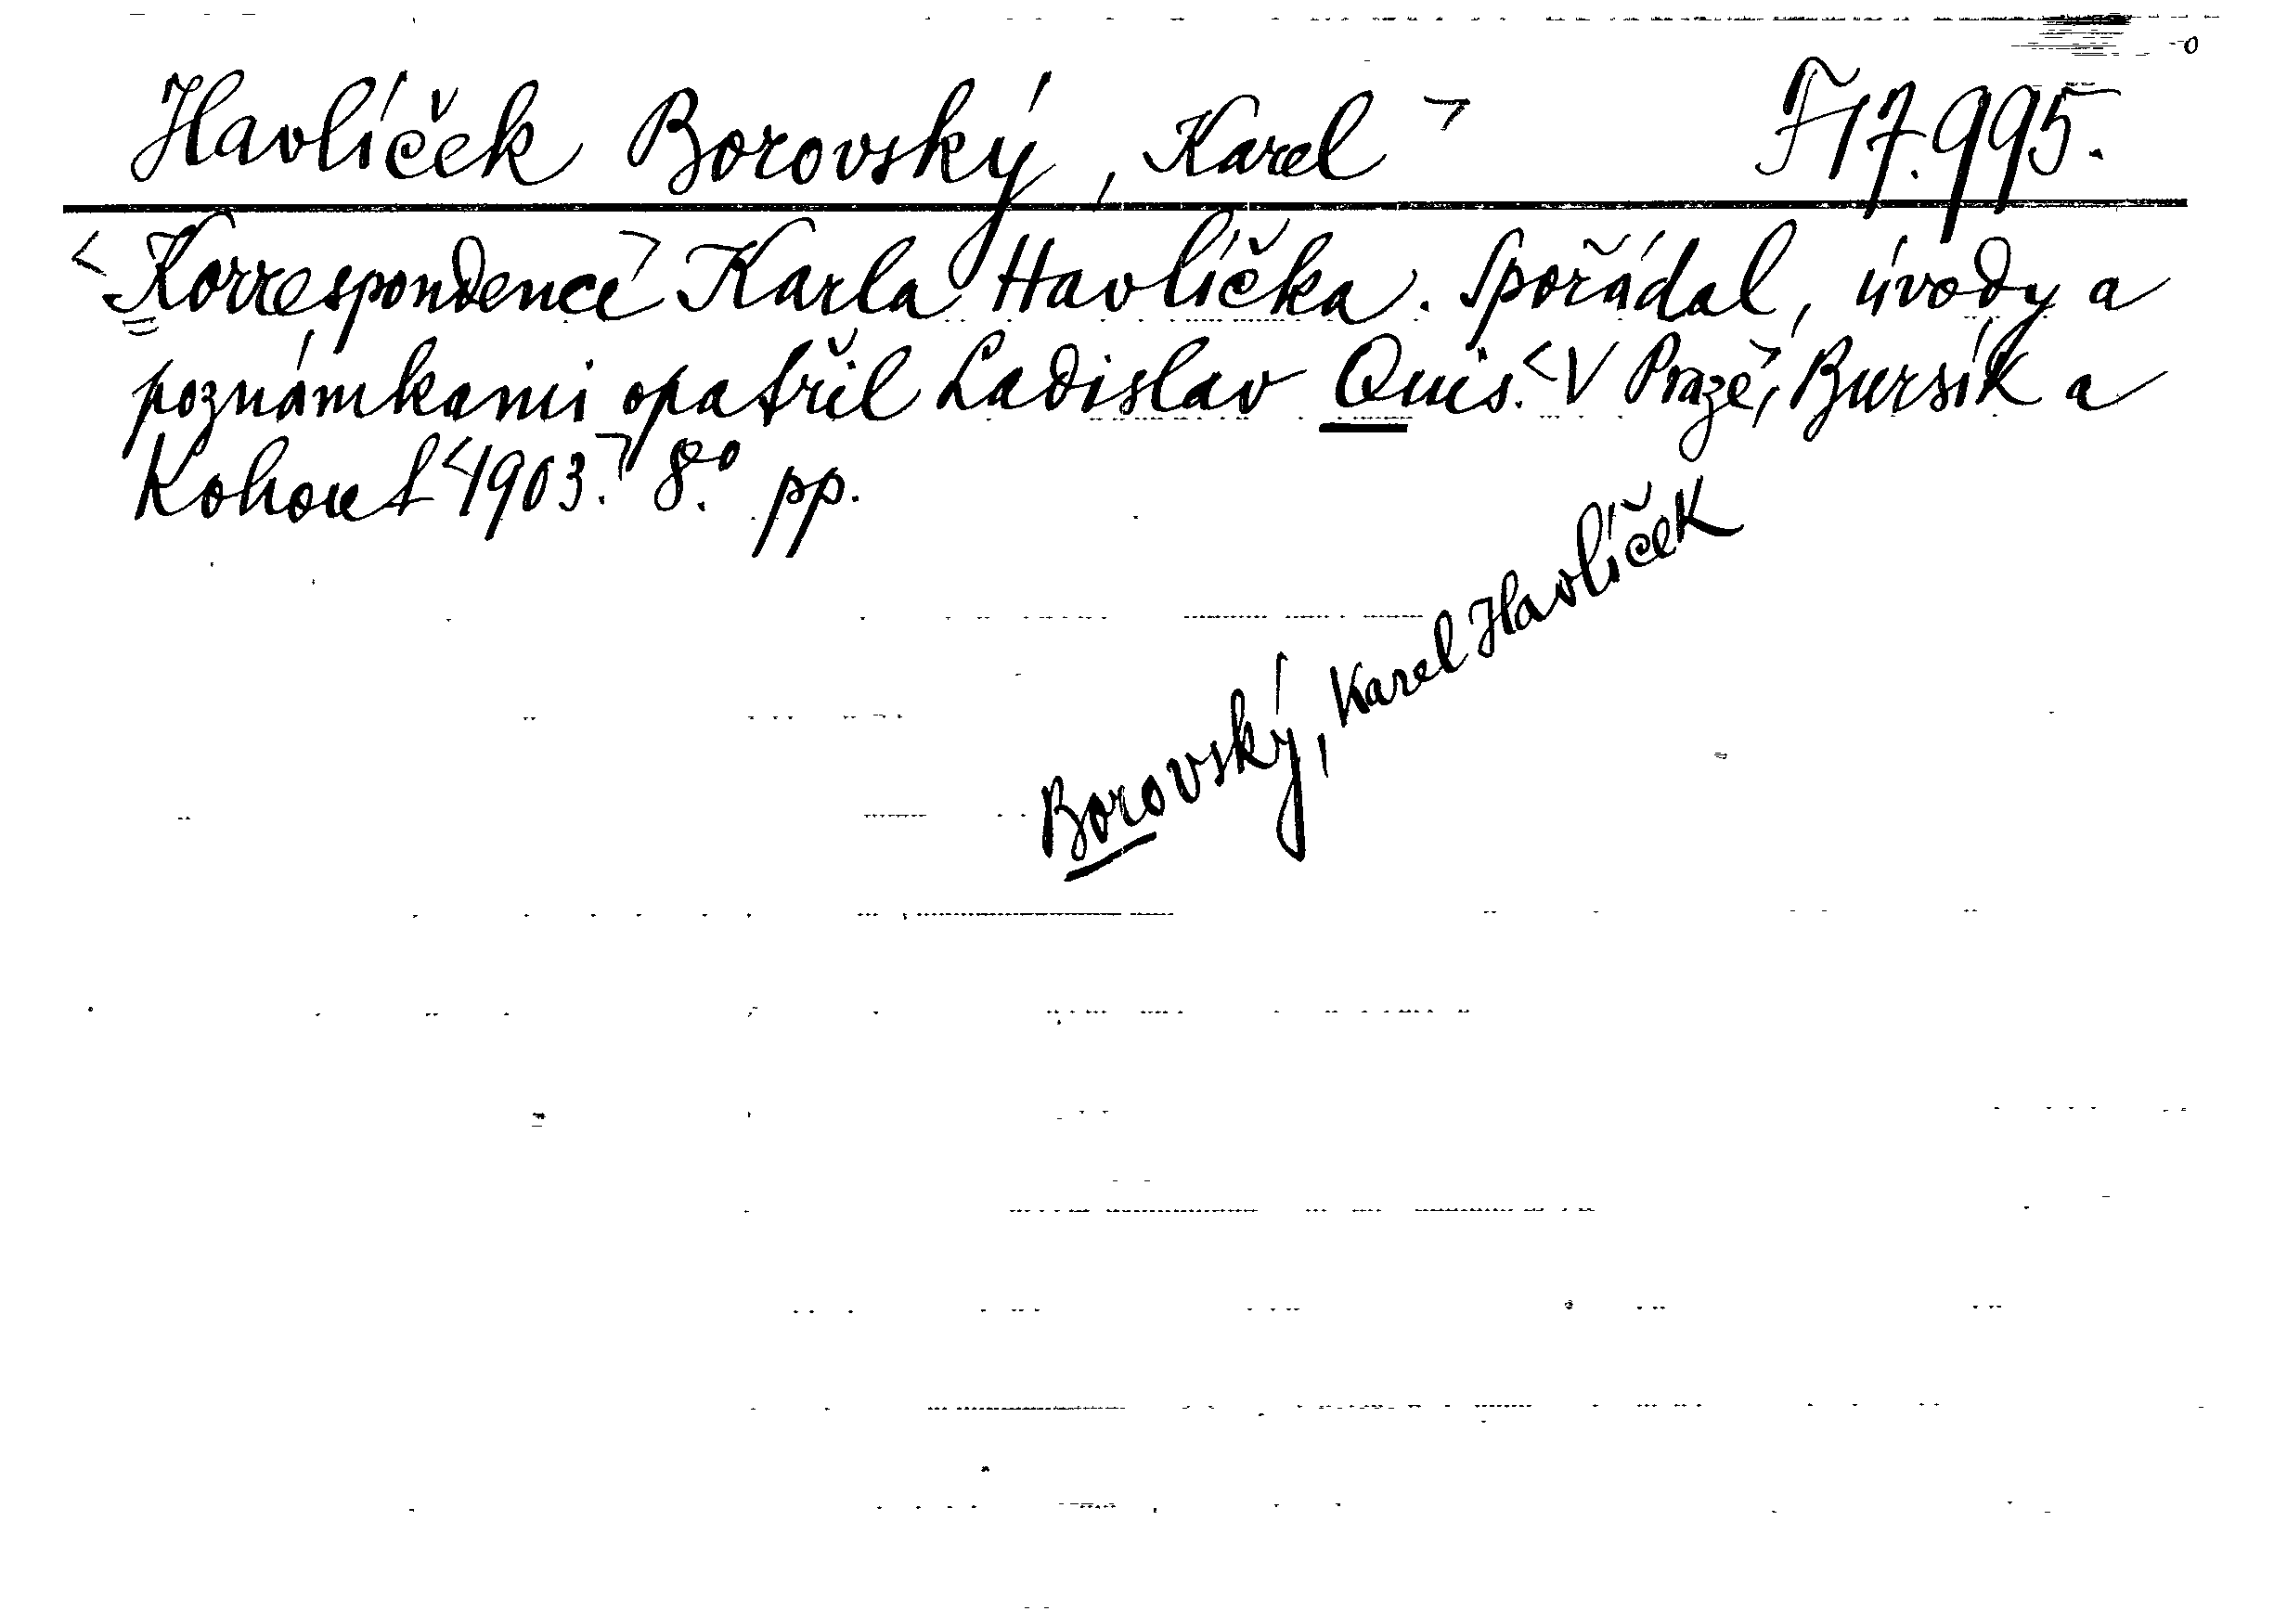 Havlíček Borovský, Karel ⌝ F 17.995.
< Korrespondence ⌝ Karla Havlíčka. Spořádal, úvody a
poznámkami opatřil Ladislav Quis. < V Praze ⌝, Bursík a
Kohout < 1903. ⌝ 8.° pp.
Borovský, Karel Havlíček